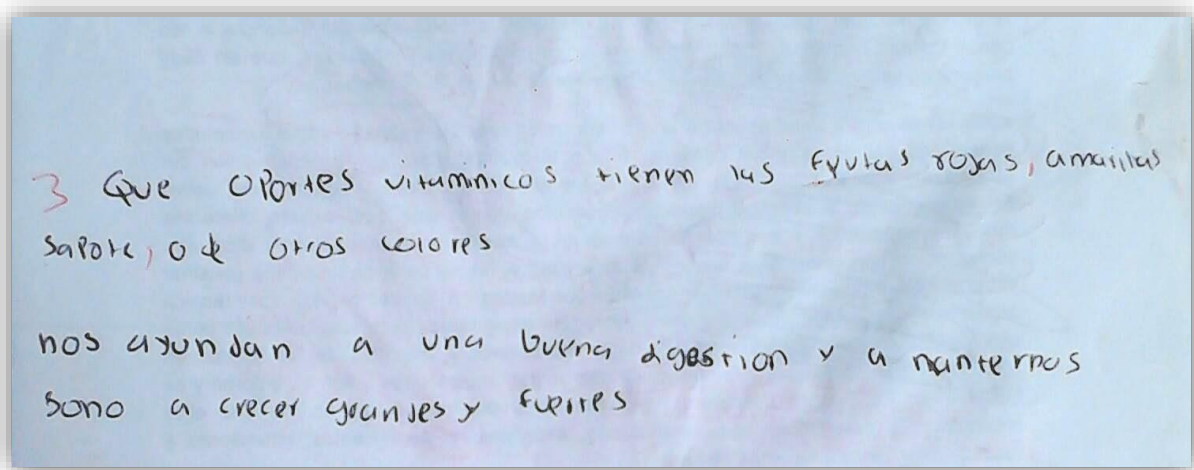 3 Que oportes vitaminicos tienen las fyutas rojas, amarillas
sapote, o de otros colores
nos ayundan a una buena digestion y a manternos
sono a crecer grandes y fuertes